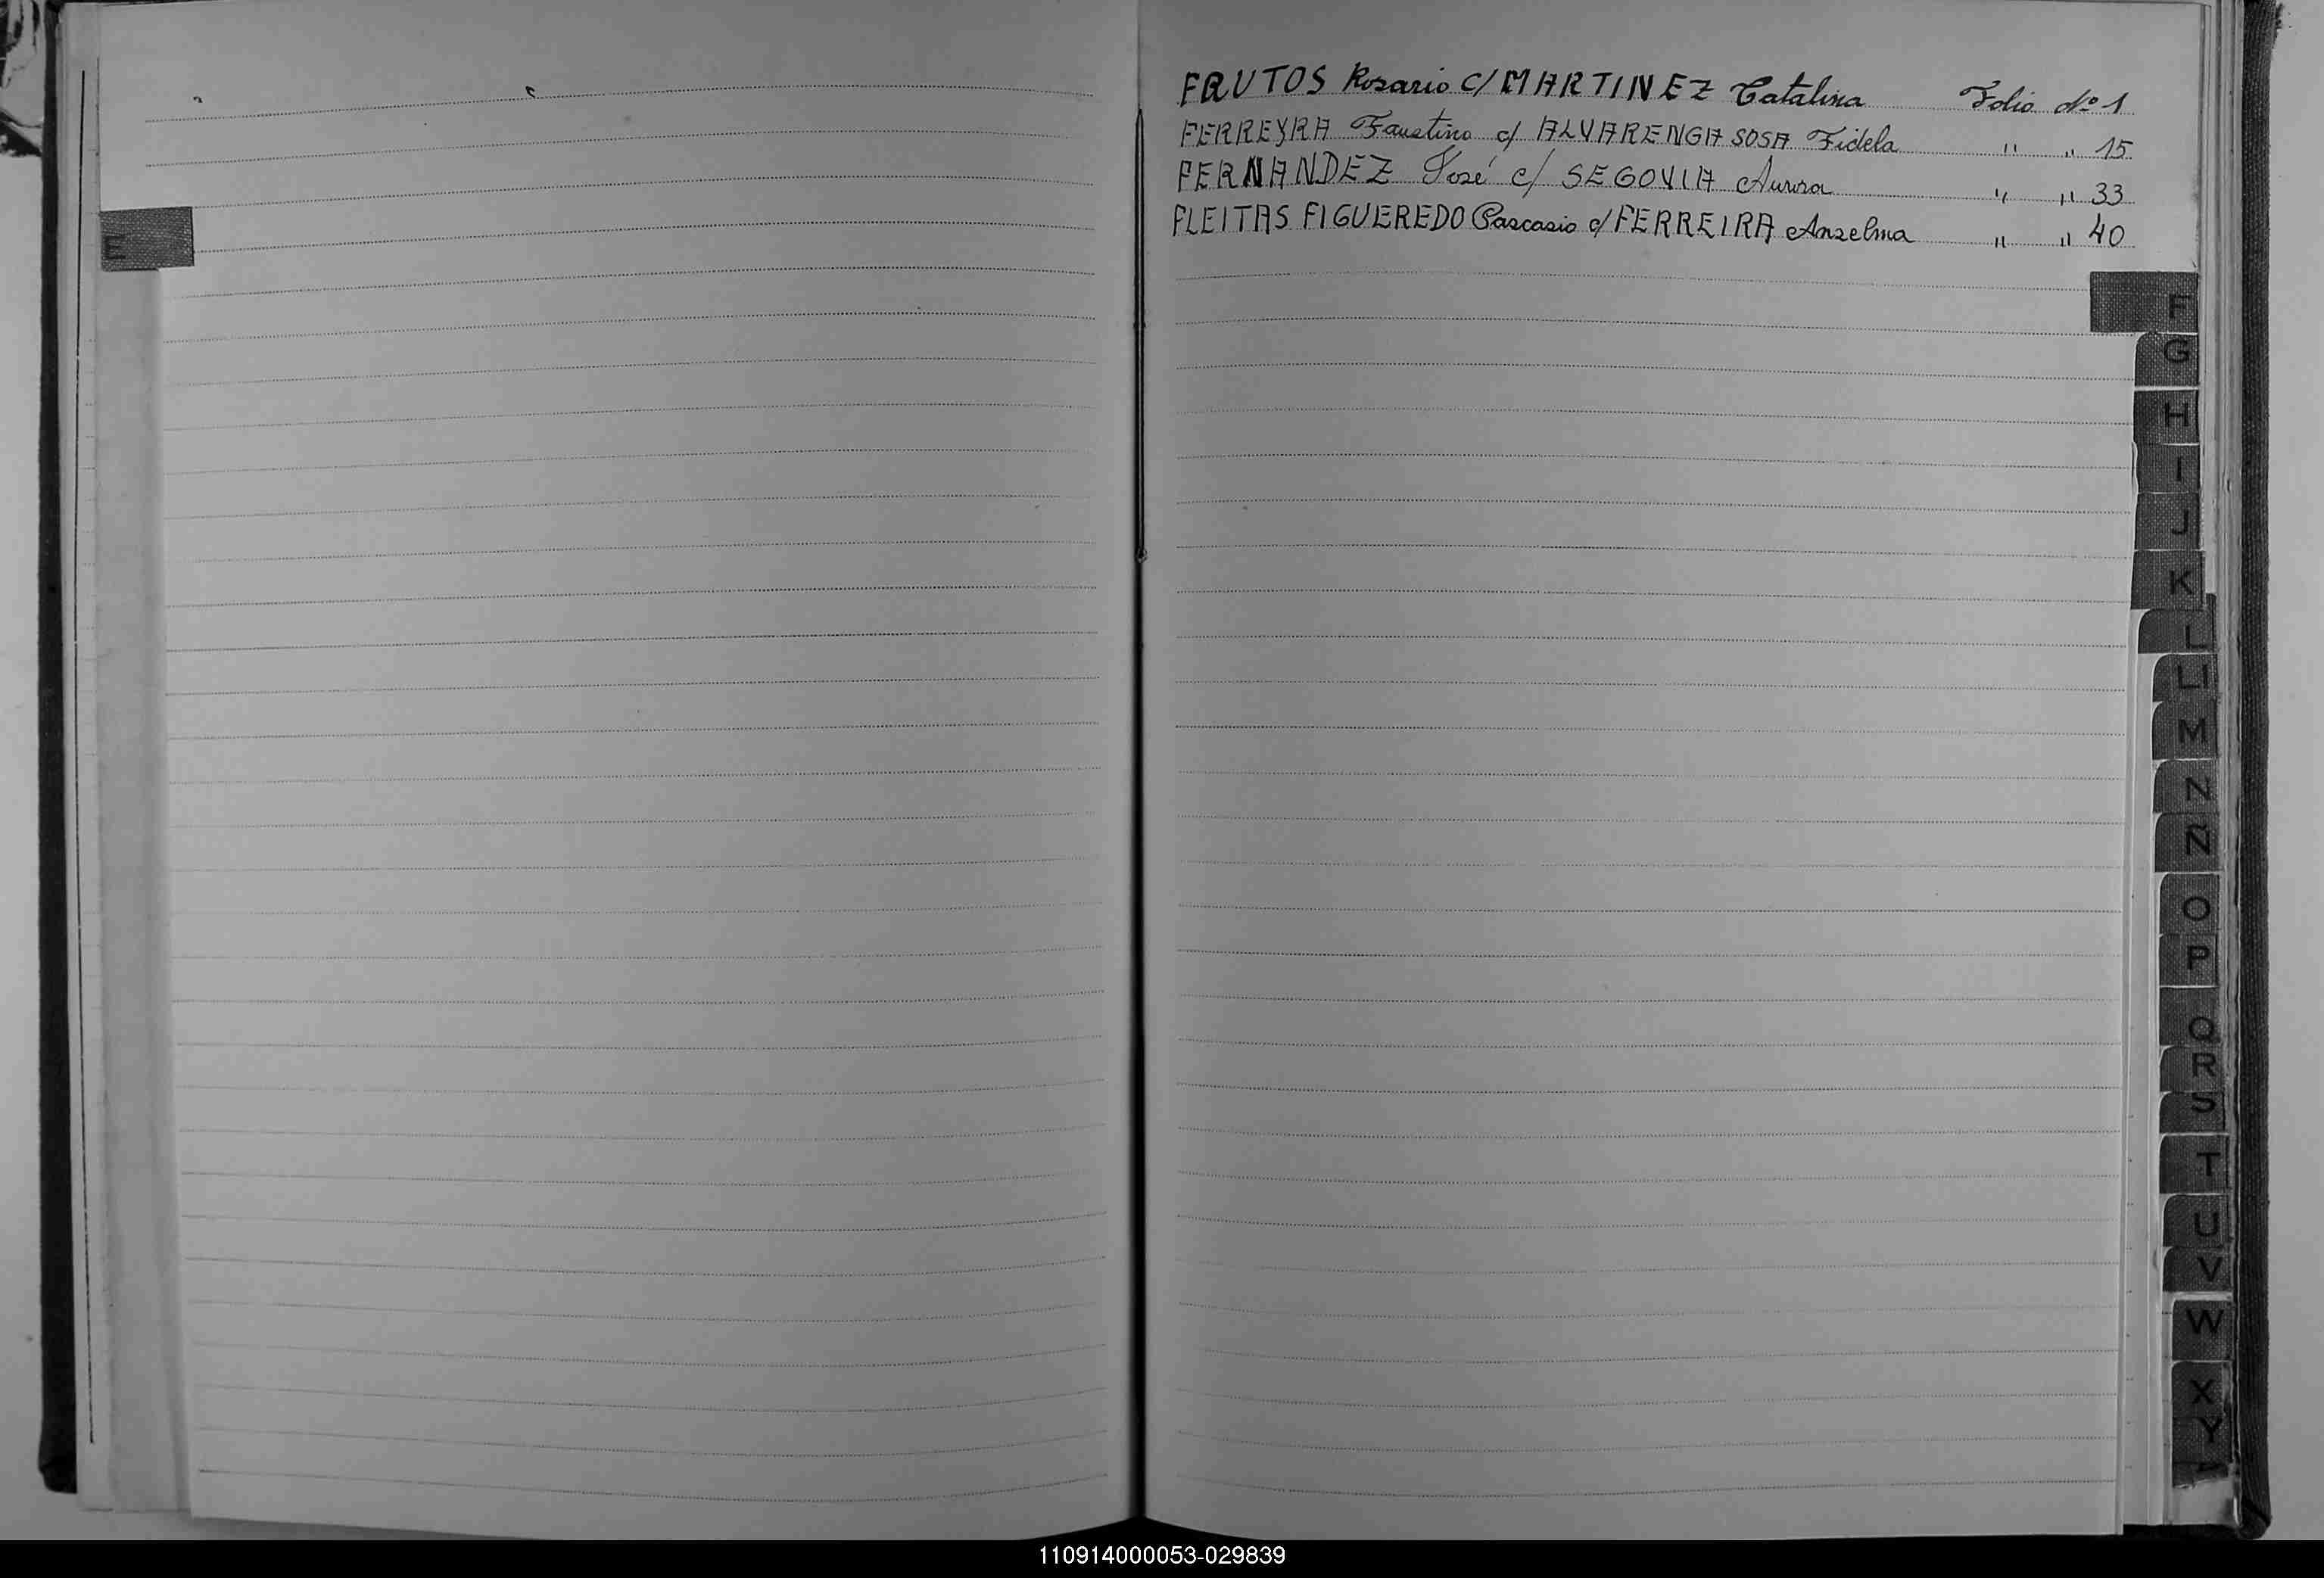 FRUTOS Rosario C/ MARTINEZ Catalina Folio Nº 1
FERREYRA Faustino c/ ALVARENGA SOSA Fidela " " 15
FERNANDEZ José c/ SEGOVIA Aurora " " 33
FLEITAS FIGUEREDO Pascasio c/ FERREIRA Anselma " " 40
E
F
G
H
I
J
K
L
Ll
M
N
Ñ
O
P
Q
R
S
T
U
V
W
X
Y
110914000053-029839